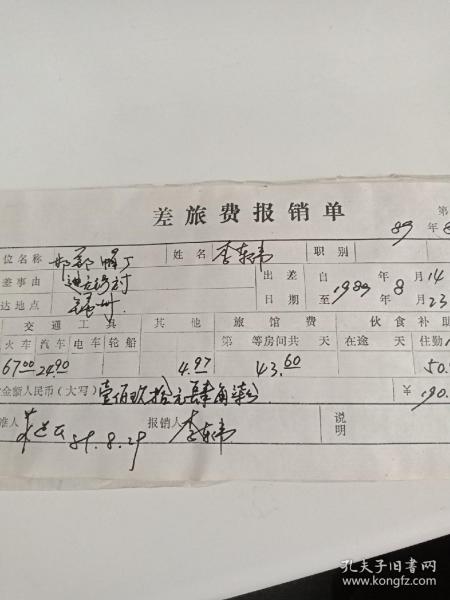 差旅费报销单
第
89 年 8
位名称 邯郸 厂 姓名 李东韦 职别
差事由 出差 自 年 月 14
达地点 州 日期 至 1989 年 8 月 23
交通工具 其他 旅馆费 伙食补助
火车 汽车 电车 轮船 第 等房间共 天 在途 天 住勤
67.00 24.90 4.97 43.60 50.
金额人民币(大写) 壹佰玖拾元肆角柒分 ¥ 190.
准人 89.8.29 报销人 李东韦 说明
孔夫子旧书网
www.kongfz.com